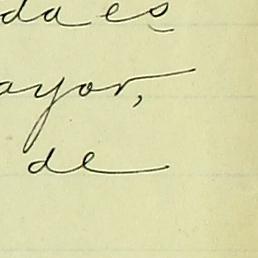 da es
ayor,
de